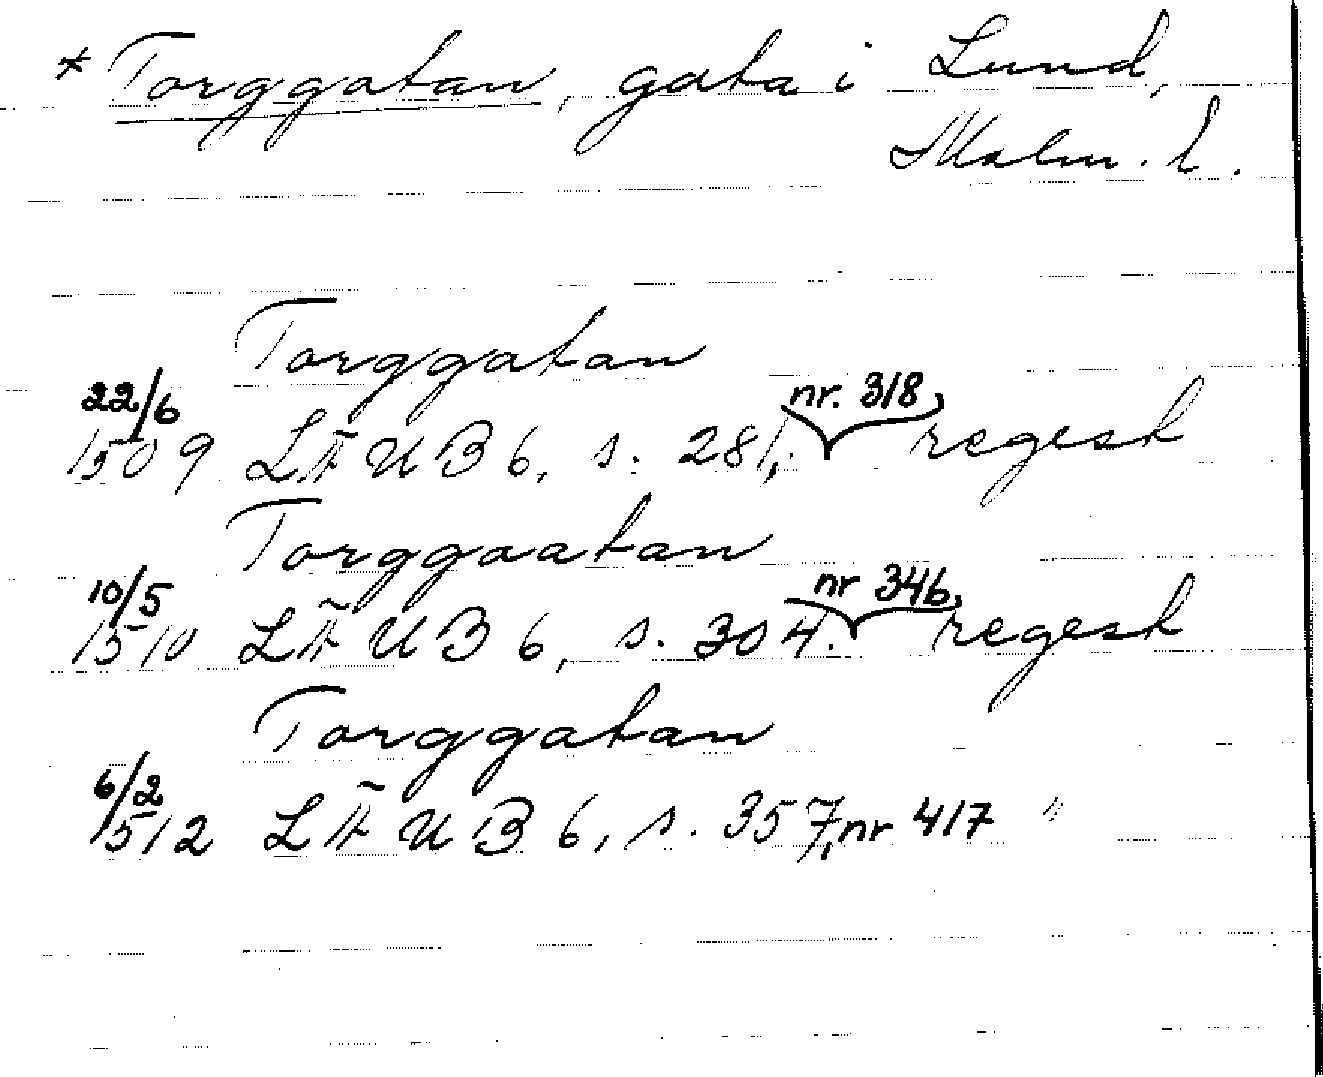 * Torggatan, gata i Lund,
Malm. l.
Torggatan
22/6
1509 LÄUB 6, s. 281, nr. 318, regest
Torggaatan
10/5
1510 LÄUB 6, s. 304. nr 346, regest
Torggatan
6/2
1512 LÄUB 6, s. 357, nr 417 "